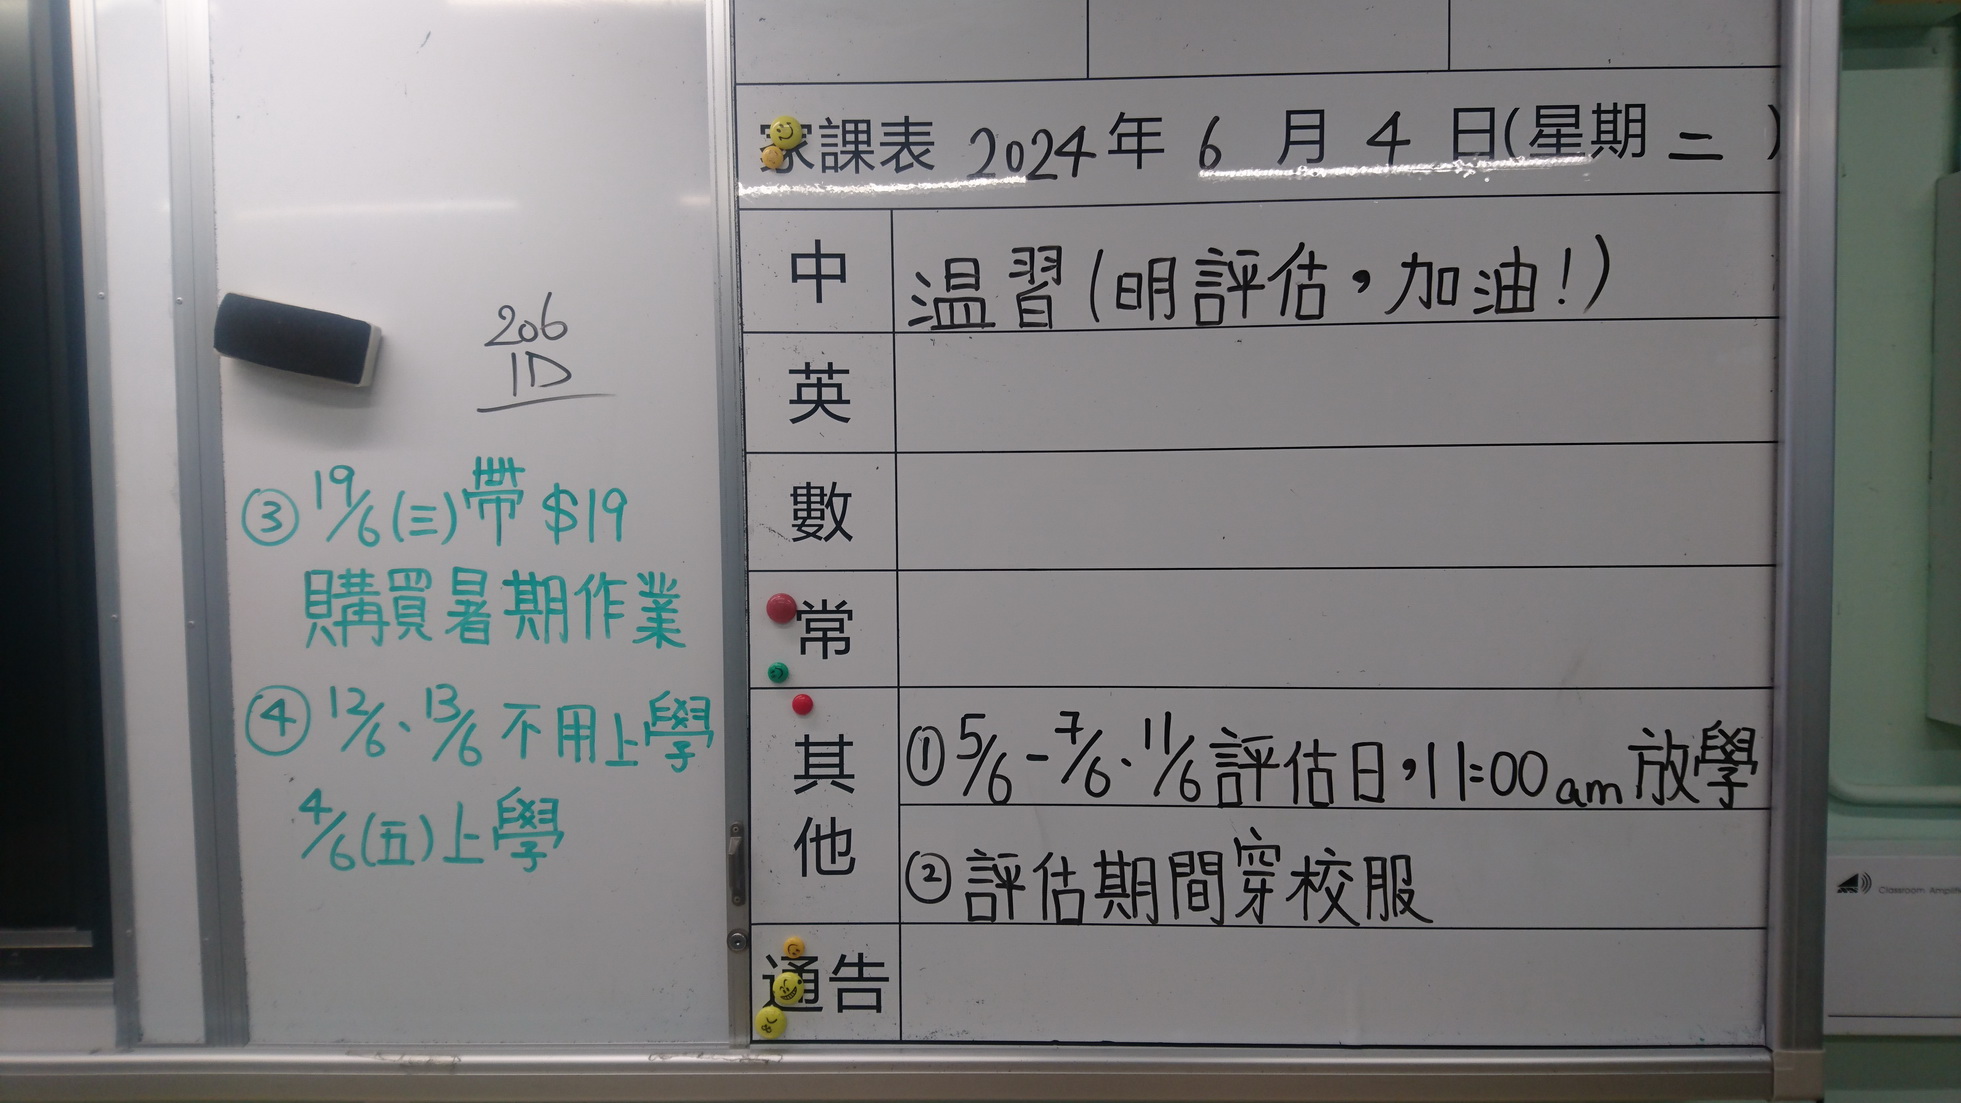 206
1D
③ 19/6(三)帶 $19
購買暑期作業
④ 12/6、13/6 不用上學
4/6(五)上學
家課表 2024年 6 月 4 日(星期 二 )
中 温習(明評估，加油!)
英
數
常
其他
① 5/6-7/6、11/6評估日，11:00am放學
② 評估期間穿校服
通告